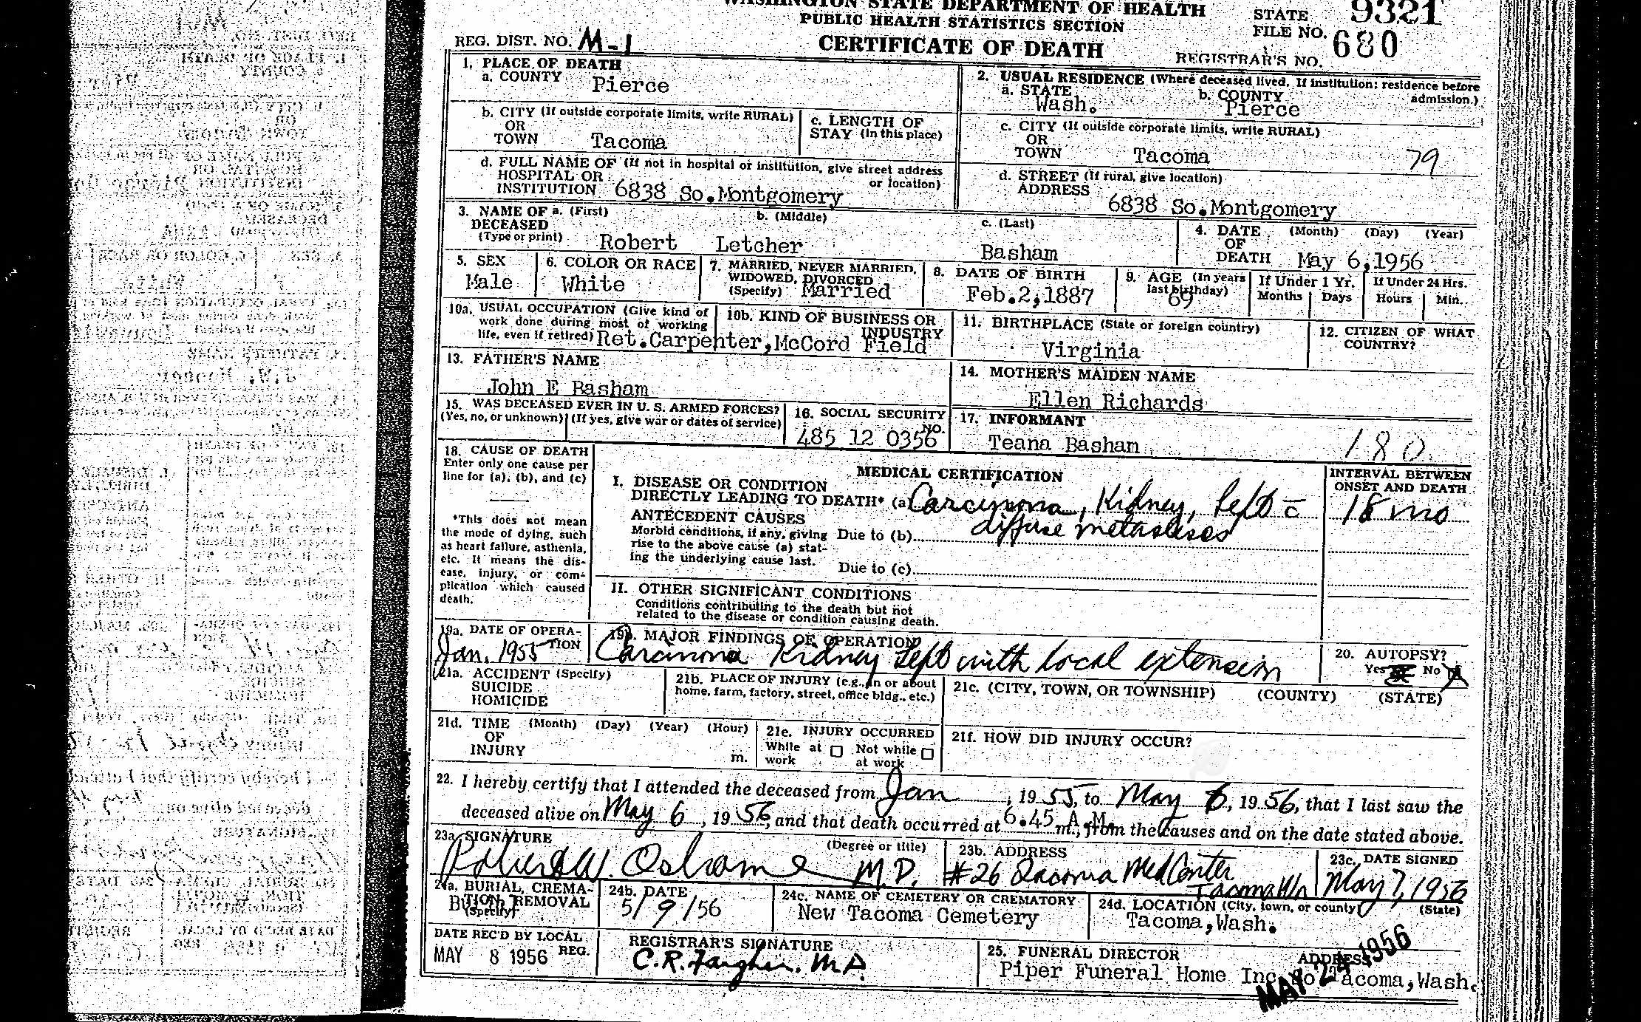 WASHINGTON STATE DEPARTMENT OF HEALTH
PUBLIC HEALTH STATISTICS SECTION
CERTIFICATE OF DEATH
REG. DIST. NO. M-1
STATE FILE NO. 9321
REGISTRAR'S NO. 680
1. PLACE OF DEATH
a. COUNTY Pierce
b. CITY (If outside corporate limits, write RURAL) OR TOWN Tacoma
c. LENGTH OF STAY (in this place)
d. FULL NAME OF (If not in hospital or institution, give street address or location) HOSPITAL OR INSTITUTION 6838 So.Montgomery
2. USUAL RESIDENCE (Where deceased lived. If institution: residence before admission.)
a. STATE Wash.
b. COUNTY Pierce
c. CITY (If outside corporate limits, write RURAL) OR TOWN Tacoma 79
d. STREET (If rural, give location) ADDRESS 6838 So.Montgomery
3. NAME OF DECEASED (Type or print)
a. (First) Robert
b. (Middle) Letcher
c. (Last) Basham
4. DATE OF DEATH (Month) (Day) (Year) May 6,1956
5. SEX Male
6. COLOR OR RACE White
7. MARRIED, NEVER MARRIED, WIDOWED, DIVORCED (Specify) Married
8. DATE OF BIRTH Feb.2,1887
9. AGE (In years last birthday) 69
If Under 1 Yr. Months Days
If Under 24 Hrs. Hours Min.
10a. USUAL OCCUPATION (Give kind of work done during most of working life, even if retired) Ret.Carpenter,
10b. KIND OF BUSINESS OR INDUSTRY McCord Field
11. BIRTHPLACE (State or foreign country) Virginia
12. CITIZEN OF WHAT COUNTRY?
13. FATHER'S NAME
John E Basham
14. MOTHER'S MAIDEN NAME
Ellen Richards
15. WAS DECEASED EVER IN U. S. ARMED FORCES? (Yes, no, or unknown) (If yes, give war or dates of service)
16. SOCIAL SECURITY NO. 485 12 0356
17. INFORMANT
Teana Basham 180
18. CAUSE OF DEATH
Enter only one cause per line for (a), (b), and (c)
*This does not mean the mode of dying, such as heart failure, asthenia, etc. It means the disease, injury, or complication which caused death.
MEDICAL CERTIFICATION
INTERVAL BETWEEN ONSET AND DEATH
I. DISEASE OR CONDITION DIRECTLY LEADING TO DEATH* (a) Carcinoma, Kidney, left c̄ diffuse metastases 18 mo
ANTECEDENT CAUSES
Morbid conditions, if any, giving rise to the above cause (a) stating the underlying cause last.
Due to (b)
Due to (c)
II. OTHER SIGNIFICANT CONDITIONS
Conditions contributing to the death but not related to the disease or condition causing death.
19a. DATE OF OPERATION Jan. 1955
19b. MAJOR FINDINGS OF OPERATION
Carcinoma Kidney Left with local extension
20. AUTOPSY?
Yes No
21a. ACCIDENT (Specify) SUICIDE HOMICIDE
21b. PLACE OF INJURY (e.g., in or about home, farm, factory, street, office bldg., etc.)
21c. (CITY, TOWN, OR TOWNSHIP) (COUNTY) (STATE)
21d. TIME OF INJURY (Month) (Day) (Year) (Hour) m.
21e. INJURY OCCURRED While at work Not while at work
21f. HOW DID INJURY OCCUR?
22. I hereby certify that I attended the deceased from Jan, 1955, to May 6, 1956, that I last saw the
deceased alive on May 6, 1956, and that death occurred at 6:45 A.M. m., from the causes and on the date stated above.
23a. SIGNATURE (Degree or title) M.D.
23b. ADDRESS #26 Tacoma Med Center Tacoma Wn
23c. DATE SIGNED May 7, 1956
24a. BURIAL, CREMATION, REMOVAL (Specify) Burial
24b. DATE 5/9/56
24c. NAME OF CEMETERY OR CREMATORY New Tacoma Cemetery
24d. LOCATION (City, town, or county) (State) Tacoma,Wash.
DATE REC'D BY LOCAL REG. MAY 8 1956
REGISTRAR'S SIGNATURE
C.R. Fargher. M.D.
25. FUNERAL DIRECTOR ADDRESS
Piper Funeral Home Inc, So Tacoma,Wash.
MAY 24 1956